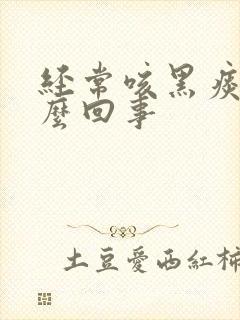 经常咳黑痰
麼回事
土豆愛西紅柿